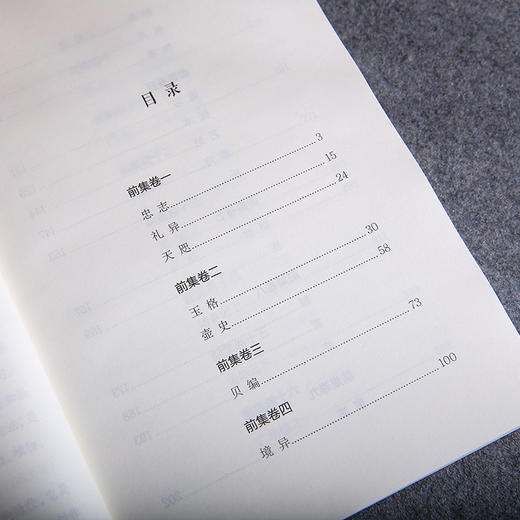 目录
前集卷一
忠志 3
礼异 15
天咫 24
前集卷二
玉格 30
壶史 58
前集卷三
贝编 73
前集卷四
境异 100